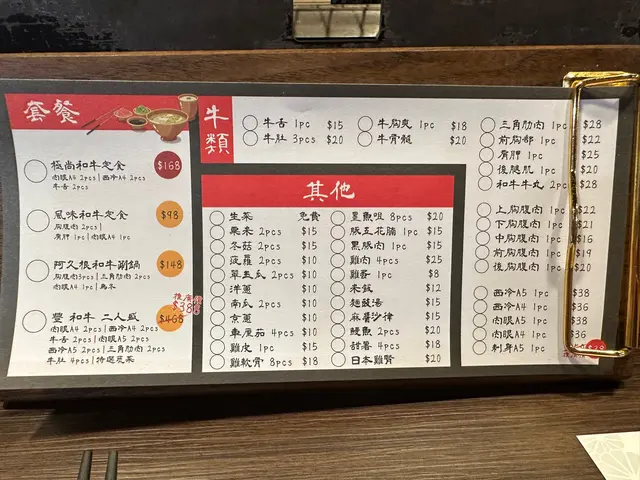 套餐
極尚和牛定食 $168
肉眼A4 2pcs|西冷A4 2pcs
牛舌 2pcs
風味和牛定食 $98
胸腹肉 2pcs|
肩胛 1pc|肉眼A4 1pc
阿久根和牛涮鍋 $148
胸腹肉3pcs|三角肋肉 2pcs
肉眼A4 1pc|烏冬
推廣價
$388
豐 和牛 二人盛 $468
肉眼A4 2pcs|西冷A4 2pcs
牛舌 2pcs|肉眼A5 2pcs
西冷A5 2pcs|三角肋肉 2pcs
牛肚 4pcs|特選蔬菜
牛類
牛舌 1pc $15
牛肚 3pcs $20
牛胸爽 1pc $18
牛骨髓 $20
三角肋肉 1pc $28
前胸部 1pc $22
肩胛 1pc $25
後腿肌 1pc $20
和牛牛丸 2pcs $28
上胸腹肉 1pc $22
下胸腹肉 1pc $21
中胸腹肉 1pc $16
前胸腹肉 1pc $19
後胸腹肉 1pc $20
西冷A5 1pc $38
西冷A4 1pc $36
肉眼A5 1pc $38
肉眼A4 1pc $36
刺身A5 1pc
其他
生菜 免費
粟米 2pcs $15
冬菇 2pcs $15
菠蘿 2pcs $10
翠玉瓜 2pcs $10
洋蔥 $10
南瓜 2pcs $10
京蔥 $10
車厘茄 4pcs $10
雞皮 1pc $15
雞軟骨 8pcs $18
墨魚咀 8pcs $20
豚五花腩 1pc $15
黑豚肉 1pc $15
雞肉 4pcs $25
雞番 1pc $8
米飯 $12
麵豉湯 $15
麻醬沙律 $15
鰻魚 2pcs $20
甜薯 4pcs $18
日本雞腎 $20